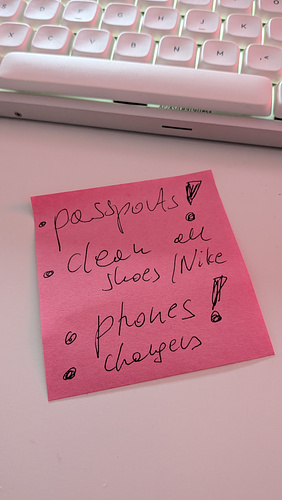 X C V B N M , <
• passports!
• clean all
shoes / Nike
• phones!
• chargers